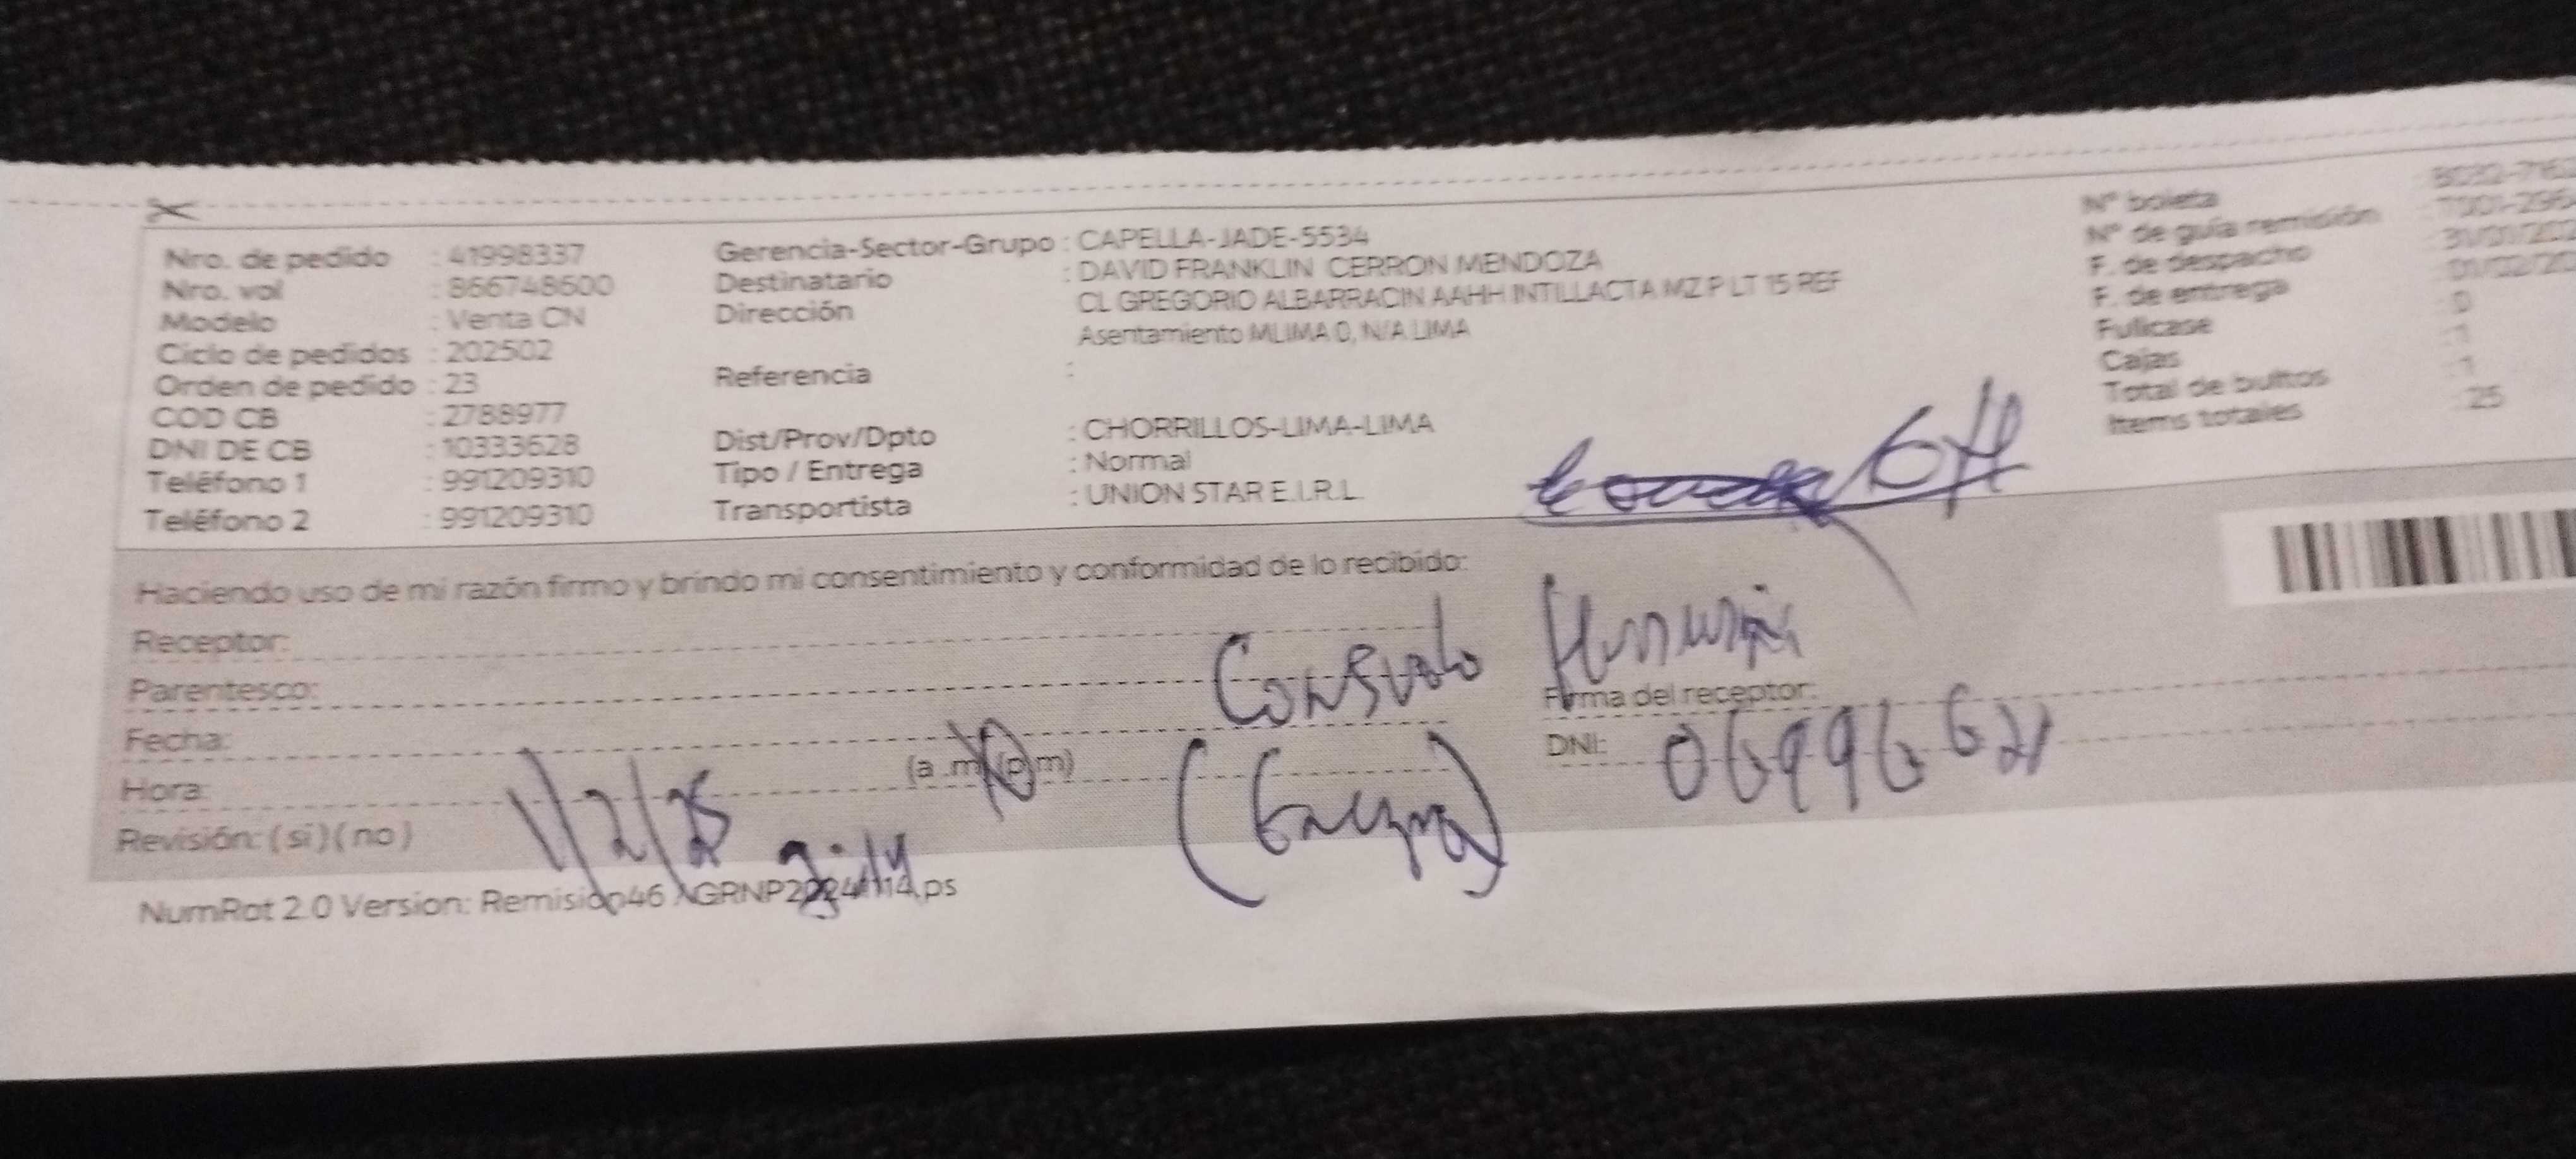 Nro. de pedido : 41998337
Nro. vol : 866748600
Modelo : Venta CN
Ciclo de pedidos : 202502
Orden de pedido : 23
COD CB : 2788977
DNI DE CB : 10333628
Teléfono 1 : 991209310
Teléfono 2 : 991209310
Gerencia-Sector-Grupo : CAPELLA-JADE-5534
Destinatario : DAVID FRANKLIN CERRON MENDOZA
Dirección CL GREGORIO ALBARRACIN AAHH INTILLACTA MZ P LT 15 REF
Asentamiento MLIMA 0, N/A LIMA
Referencia :
Dist/Prov/Dpto : CHORRILLOS-LIMA-LIMA
Tipo / Entrega : Normal
Transportista : UNION STAR E.I.R.L.
N° boleta
N° de guía remisión
F. de despacho
F. de entrega
Fullcase : 0
Cajas : 1
Total de bultos : 1
Items totales : 25
Haciendo uso de mi razón firmo y brindo mi consentimiento y conformidad de lo recibido:
Receptor:
Parentesco:
Fecha:
Hora: (a .m) (p.m)
Revisión: ( si ) ( no )
Consuelo
Firma del receptor:
DNI: 06996621
1/2/25
NumRot 2.0 Version: Remision46 AGRNP20241114.ps